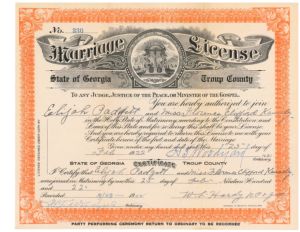 No. 330
Marriage License
State of Georgia Troup County
TO ANY JUDGE, JUSTICE OF THE PEACE, OR MINISTER OF THE GOSPEL
You are hereby authorized to join
Elijah Padgett and Miss Florence Clifford Kennedy
in the Holy State of Matrimony according to the Constitution and
Laws of this State and for so doing this shall be your License
And you are hereby required to return this License to me with your
Certificate hereon of the fact and date of the Marriage.
Given under my hand and seal this 25 day of
Feb 1922
STATE OF GEORGIA Certificate TROUP COUNTY
I Certify that Elijah Padgett and Miss Florence Clifford Kennedy
were joined in Matrimony by me this day of Nineteen Hundred
and 22
Recorded
PARTY PERFORMING CEREMONY RETURN TO ORDINARY TO BE RECORDED